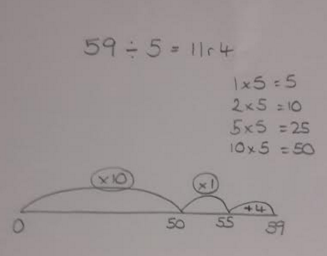 59 ÷ 5 = 11r4
1 × 5 = 5
2 × 5 = 10
5 × 5 = 25
10 × 5 = 50
×10 ×1 +4
0 50 55 59